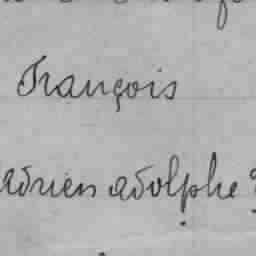 François
Adrien Adolphe